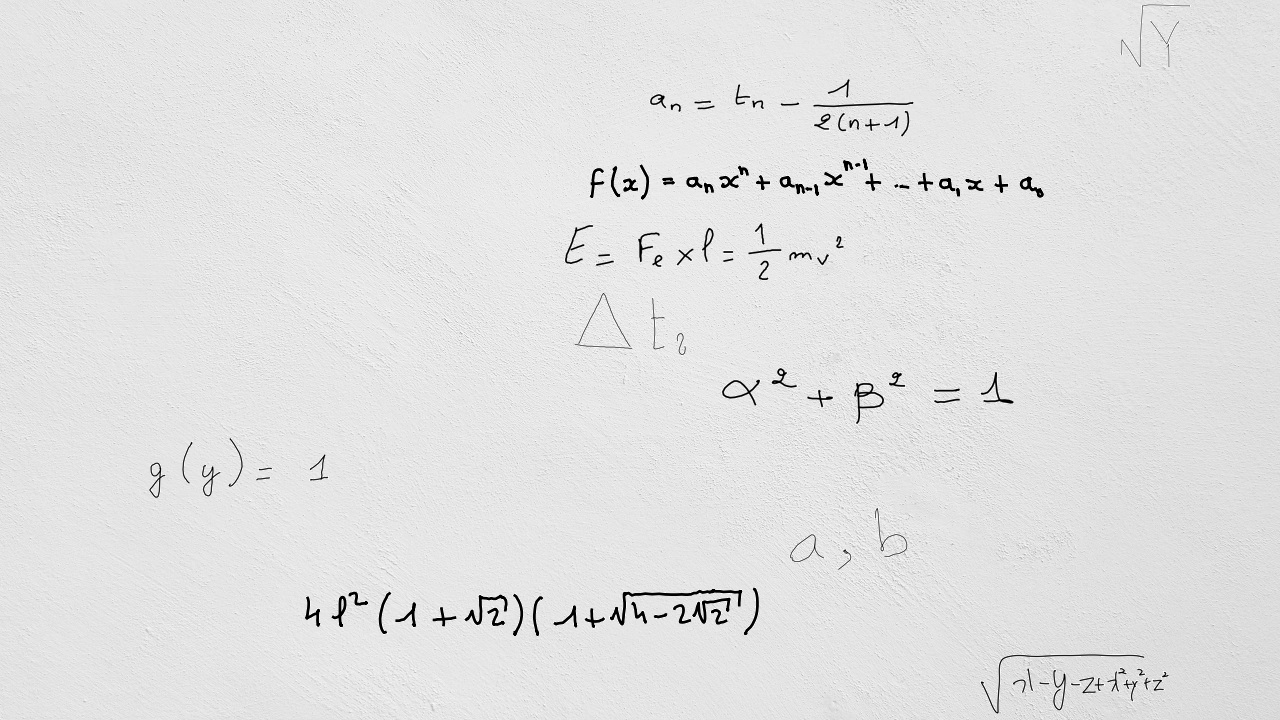 √Y
aₙ = tₙ − 1/(2(n+1))
f(x) = aₙxⁿ + aₙ₋₁xⁿ⁻¹ + ... + a₁x + a₀
E = Fₑ × l = 1/2 mv²
Δ t₂
α² + β² = 1
g(y) = 1
a, b
4l²(1 + √2)(1 + √(4 − 2√2))
√(x − y − z + x² + y² + z²)